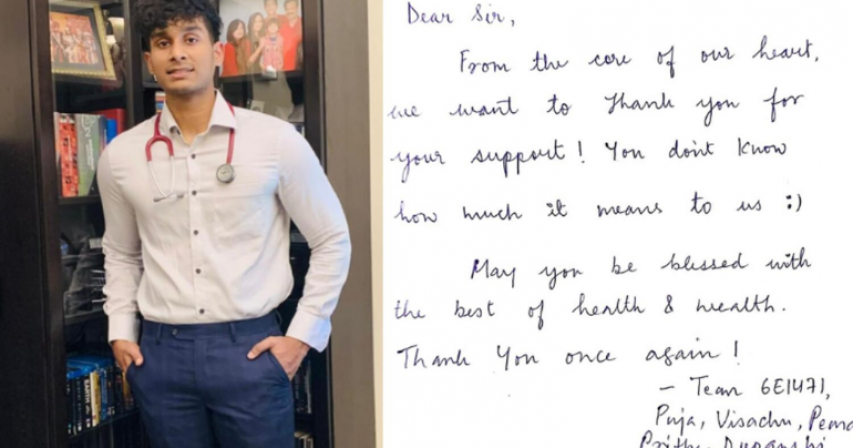 Dear Sir,
From the core of our heart,
we want to thank you for
your support! You don't know
how much it means to us :)
May you be blessed with
the best of health & wealth.
Thank You once again!
- Team 6E1471,
Puja, Visachu, Pema